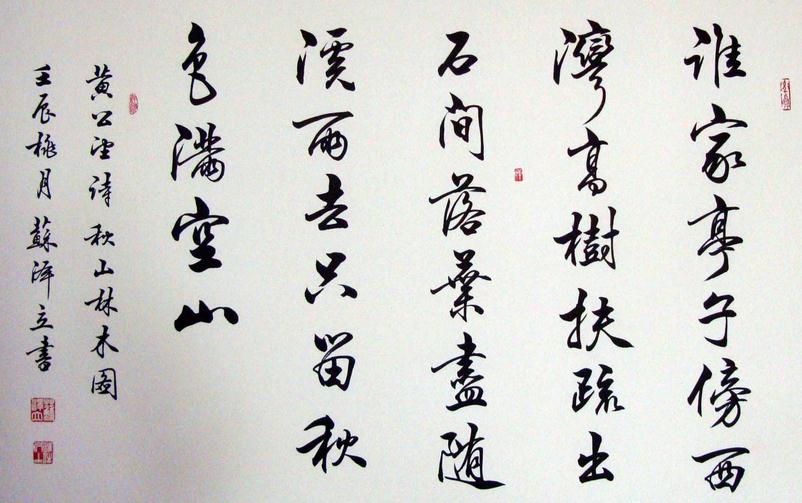 谁家亭子傍西
湾高樹扶疏出
石间落葉盡随
溪雨去只留秋
色满空山
黄公望诗秋山林木图
壬辰桃月蘇泽立書